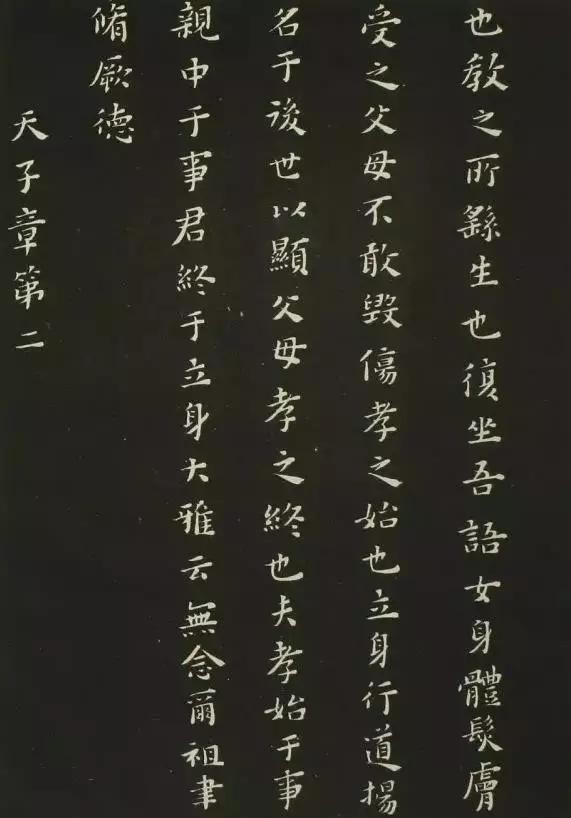 也教之所繇生也復坐吾語女身體髮膚
受之父母不敢毀傷孝之始也立身行道揚
名于後世以顯父母孝之終也夫孝始于事
親中于事君終于立身大雅云無念爾祖聿
脩厥德
天子章第二